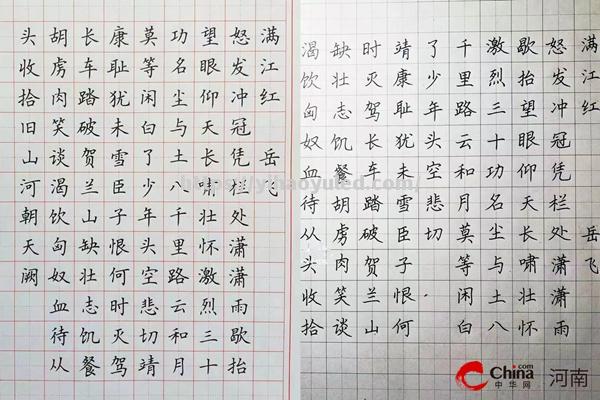 满江红 岳飞
怒发冲冠凭栏处潇潇雨歇抬
望眼仰天长啸壮怀激烈三十
功名尘与土八千里路云和月
莫等闲白了少年头空悲切靖
康耻犹未雪臣子恨何时灭驾
长车踏破贺兰山缺壮志饥餐
胡虏肉笑谈渴饮匈奴血待从
头收拾旧山河朝天阙
满江红 岳飞
怒发冲冠凭栏处潇潇雨
歇抬望眼仰天长啸壮怀
激烈三十功名尘与土八
千里路云和月莫等闲白
了少年头空悲切.
靖康耻犹未雪臣子恨何
时灭驾长车踏破贺兰山
缺壮志饥餐胡虏肉笑谈
渴饮匈奴血待从头收拾
https://yihaoyuled.com,
China.com
中华网
河南